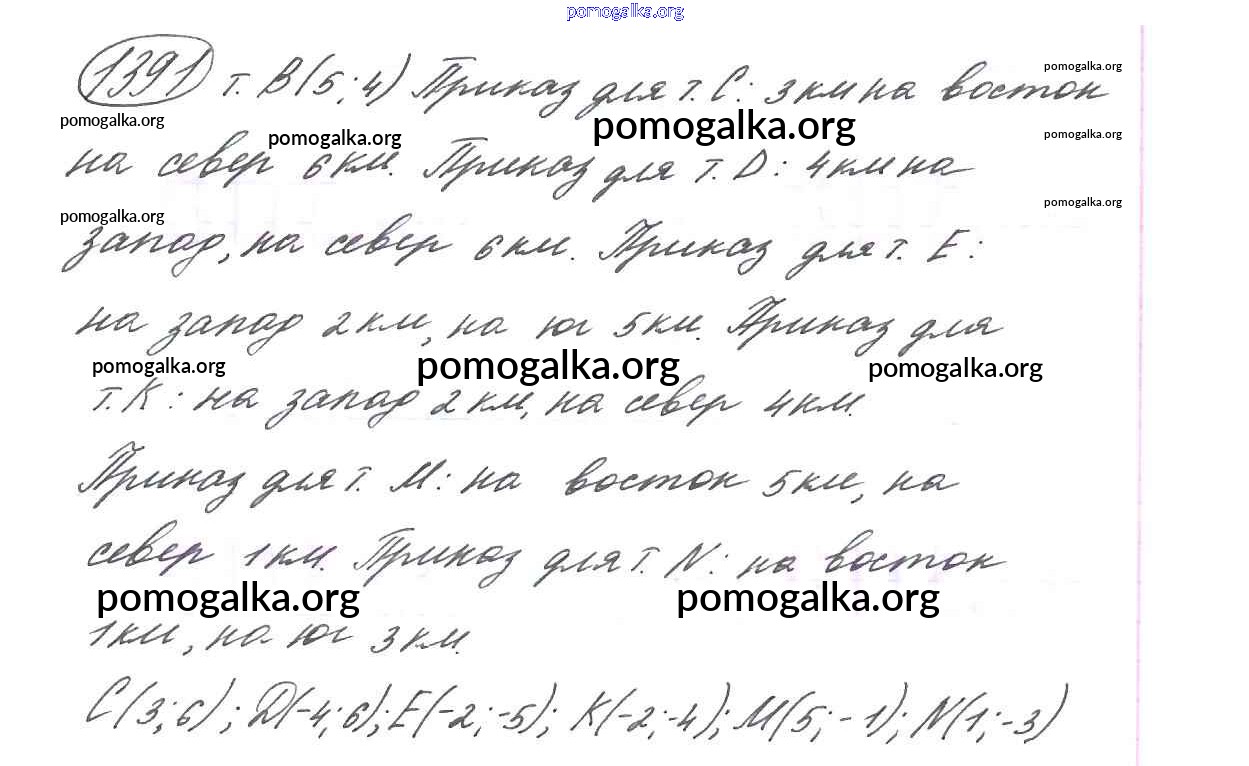 pomogalka.org
1391 т. B(5;4) Приказ для т. C: 3 км на восток
pomogalka.org
pomogalka.org pomogalka.org pomogalka.org pomogalka.org
на север 6 км. Приказ для т. D: 4 км на
pomogalka.org pomogalka.org
запад, на север 6 км. Приказ для т. E:
на запад 2 км, на юг 5 км. Приказ для
pomogalka.org pomogalka.org pomogalka.org
т. K: на запад 2 км, на север 4 км.
Приказ для т. M: на восток 5 км, на
север 1 км. Приказ для т. N: на восток
pomogalka.org pomogalka.org
1 км, на юг 3 км.
C(3;6); D(-4;6); E(-2;-5); K(-2;-4); M(5;-1); N(1;-3)